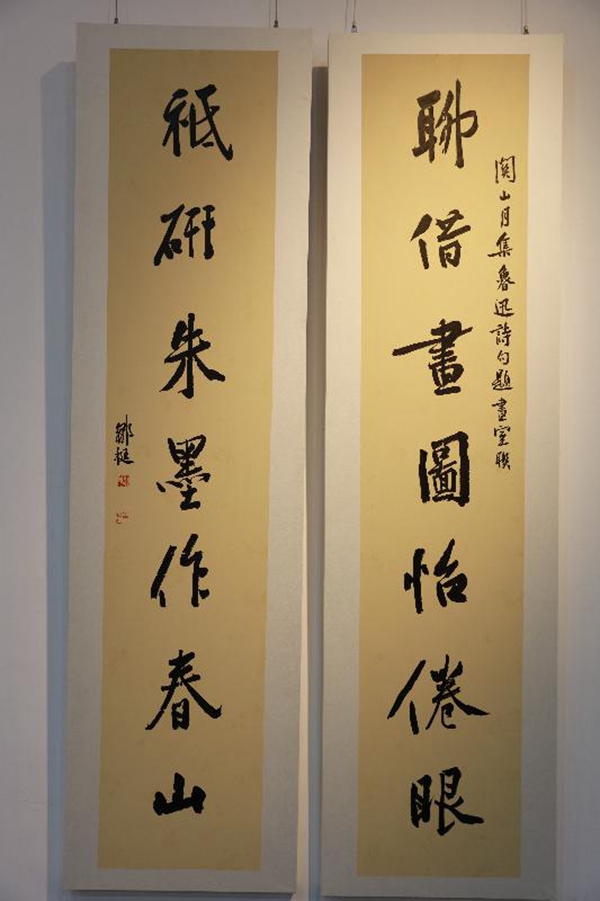 聊借畫圖怡倦眼
関山月集魯迅詩句題畫室聯
祗研朱墨作春山
鄒挺